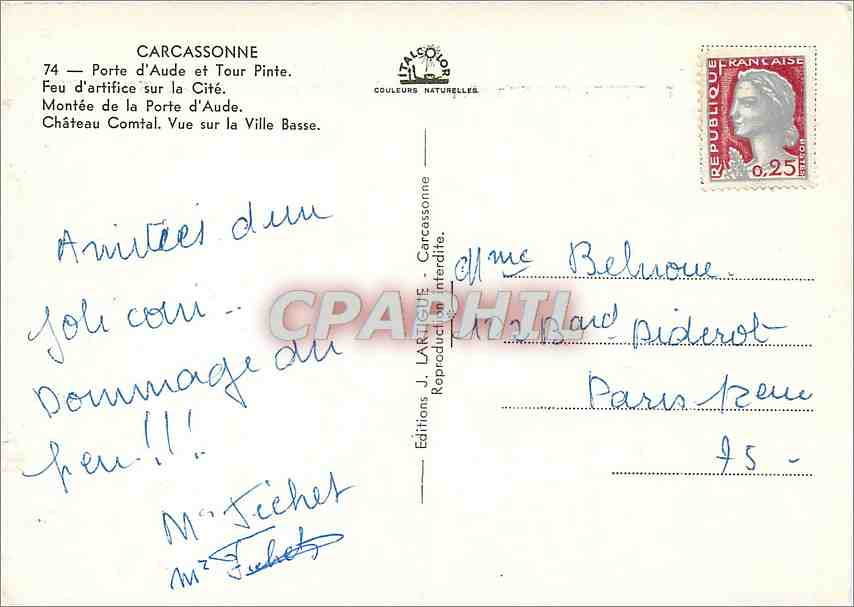 CARCASSONNE
74 — Porte d'Aude et Tour Pinte.
Feu d'artifice sur la Cité.
Montée de la Porte d'Aude.
Château Comtal. Vue sur la Ville Basse.
ITALCOLOR
COULEURS NATURELLES
REPUBLIQUE FRANCAISE
POSTES
0,25
Amitiés d'un
joli coin..
Dommage du
peu!!!
Mr Fichet
Mr Fichet
Editions J. LARTIGUE - Carcassonne
Reproduction Interdite.
CPAPHIL
Mme Belnoue.
172 Bard Diderot
Paris 12eme
75 -